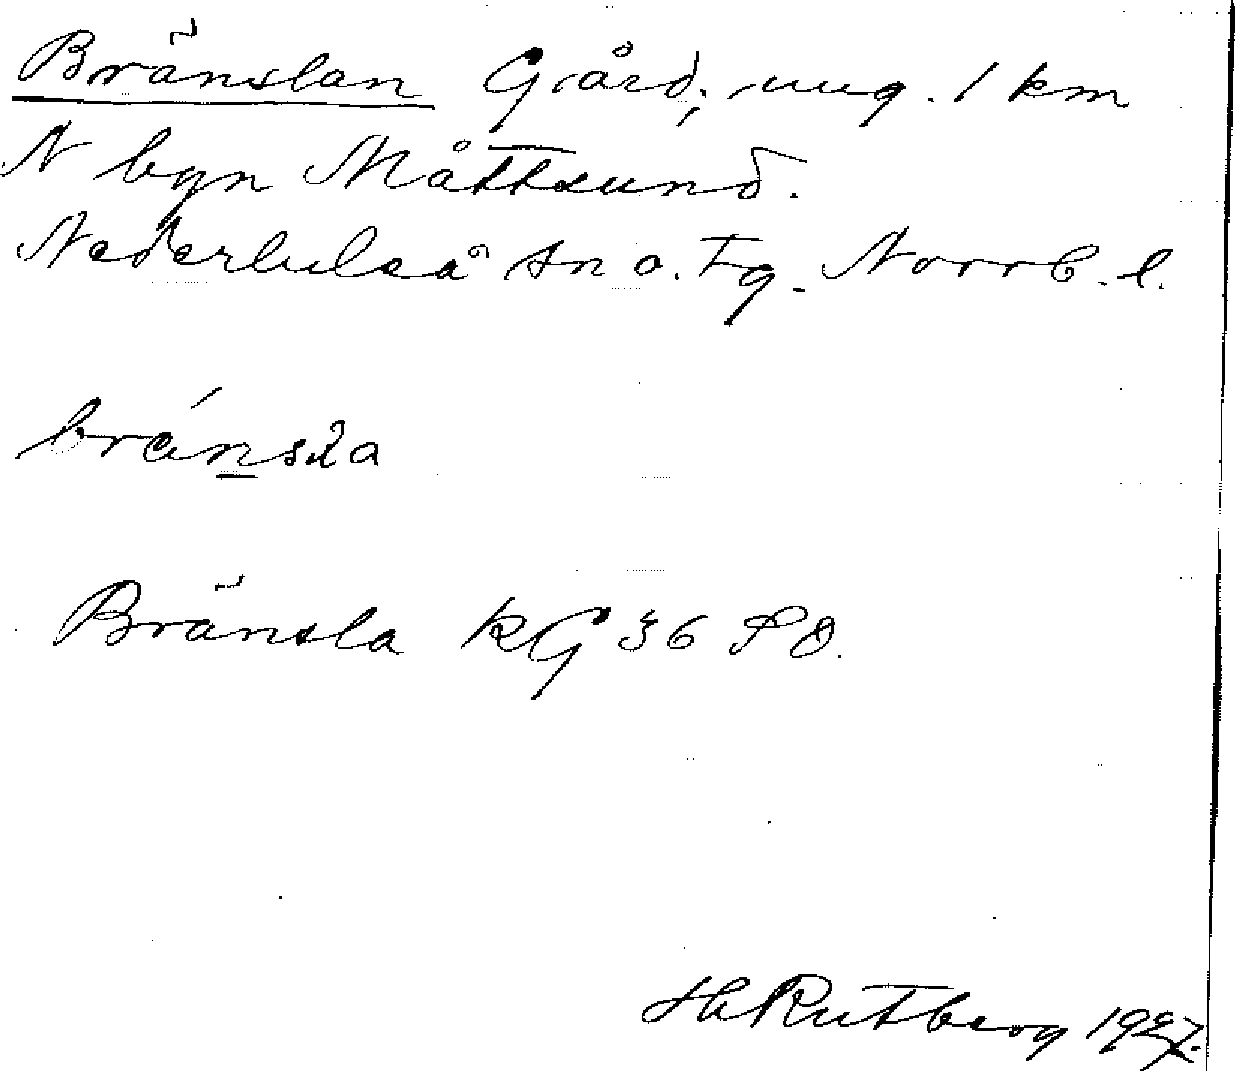 Bränslan Gård, ung. 1 km
N byn Måttsund.
Nederluleå sn o. tg. Norrb. l.
bränsla
Bränsla KG 36 SO.
H Rutberg 1927.